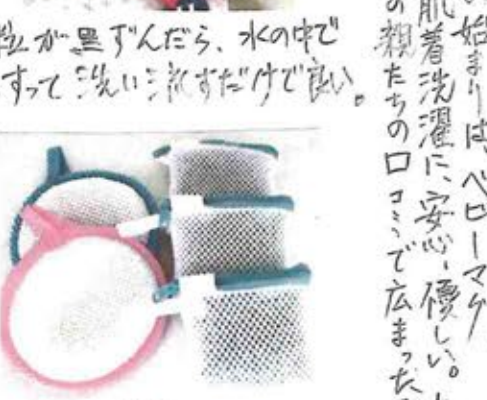 粒が黒ずんだら、水の中で
すって洗い流すだけで良い。
い始まりは、ベビーマグ
肌着洗濯に、安心、優しい。
の親たちの口コミで広まった